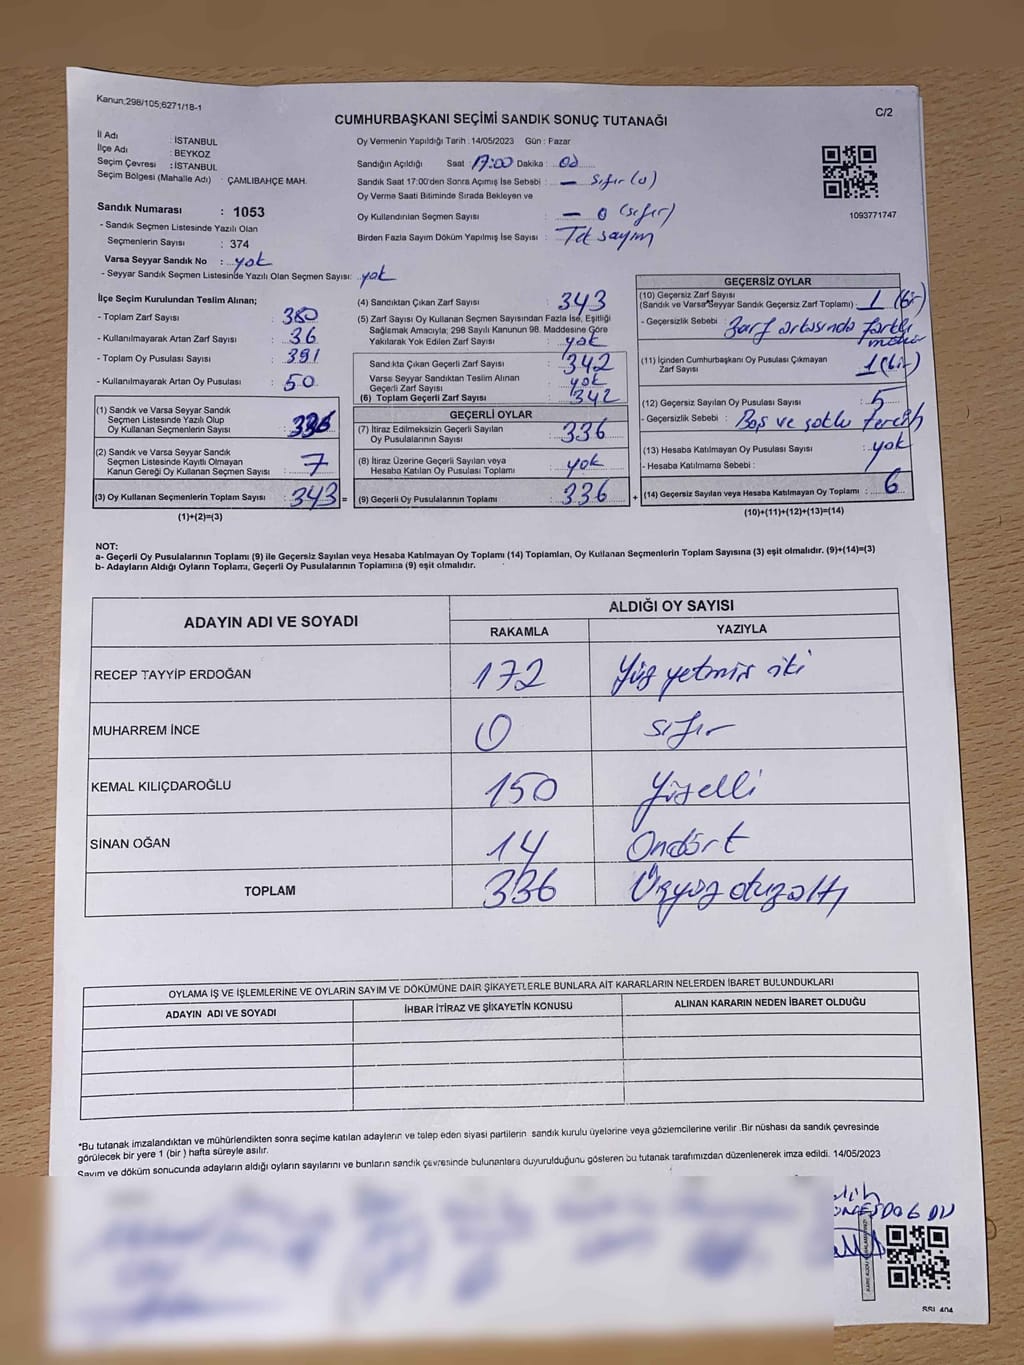 Kanun;298/105;6271/18-1
C/2
CUMHURBAŞKANI SEÇİMİ SANDIK SONUÇ TUTANAĞI
İl Adı : İSTANBUL
İlçe Adı : BEYKOZ
Seçim Çevresi : İSTANBUL
Seçim Bölgesi (Mahalle Adı) : ÇAMLIBAHÇE MAH.
Sandık Numarası : 1053
- Sandık Seçmen Listesinde Yazılı Olan
Seçmenlerin Sayısı : 374
Varsa Seyyar Sandık No : yok
- Seyyar Sandık Seçmen Listesinde Yazılı Olan Seçmen Sayısı: yok
Oy Vermenin Yapıldığı Tarih : 14/05/2023 Gün : Pazar
Sandığın Açıldığı Saat : 17:00 Dakika :
Sandık Saat 17:00'den Sonra Açımış İse Sebebi : — sıfır (0)
Oy Verme Saati Bitiminde Sırada Bekleyen ve
Oy Kullandırılan Seçmen Sayısı : — 0 (sıfır)
Birden Fazla Sayım Döküm Yapılmış İse Sayısı : Tek sayım
1093771747
İlçe Seçim Kurulundan Teslim Alınan;
- Toplam Zarf Sayısı : 380
- Kullanılmayarak Artan Zarf Sayısı : 36
- Toplam Oy Pusulası Sayısı : 391
- Kullanılmayarak Artan Oy Pusulası : 50
(1) Sandık ve Varsa Seyyar Sandık
Seçmen Listesinde Yazılı Olup
Oy Kullanan Seçmenlerin Sayısı : 336
(2) Sandık ve Varsa Seyyar Sandık
Seçmen Listesinde Kayıtlı Olmayan
Kanun Gereği Oy Kullanan Seçmen Sayısı : 7
(3) Oy Kullanan Seçmenlerin Toplam Sayısı : 343 =
(1)+(2)=(3)
(4) Sandıktan Çıkan Zarf Sayısı : 343
(5) Zarf Sayısı Oy Kullanan Seçmen Sayısından Fazla İse, Eşitliği
Sağlamak Amacıyla; 298 Sayılı Kanunun 98. Maddesine Göre
Yakılarak Yok Edilen Zarf Sayısı : yok
Sandıkta Çıkan Geçerli Zarf Sayısı : 342
Varsa Seyyar Sandıktan Teslim Alınan
Geçerli Zarf Sayısı : yok
(6) Toplam Geçerli Zarf Sayısı : 342
GEÇERLİ OYLAR
(7) İtiraz Edilmeksizin Geçerli Sayılan
Oy Pusulalarının Sayısı : 336
(8) İtiraz Üzerine Geçerli Sayılan veya
Hesaba Katılan Oy Pusulası Toplamı : yok
(9) Geçerli Oy Pusulalarının Toplamı : 336 +
GEÇERSİZ OYLAR
(10) Geçersiz Zarf Sayısı
(Sandık ve Varsa Seyyar Sandık Geçersiz Zarf Toplamı) : 1 (bir)
- Geçersizlik Sebebi : Zarf arkasında farklı
mühür
(11) İçinden Cumhurbaşkanı Oy Pusulası Çıkmayan
Zarf Sayısı : 1 (bir)
(12) Geçersiz Sayılan Oy Pusulası Sayısı : 5
- Geçersizlik Sebebi : Boş ve çoklu tercih
(13) Hesaba Katılmayan Oy Pusulası Sayısı : yok
- Hesaba Katılmama Sebebi :
(14) Geçersiz Sayılan veya Hesaba Katılmayan Oy Toplamı : 6
(10)+(11)+(12)+(13)=(14)
NOT:
a- Geçerli Oy Pusulalarının Toplamı (9) ile Geçersiz Sayılan veya Hesaba Katılmayan Oy Toplamı (14) Toplamları, Oy Kullanan Seçmenlerin Toplam Sayısına (3) eşit olmalıdır. (9)+(14)=(3)
b- Adayların Aldığı Oyların Toplamı, Geçerli Oy Pusulalarının Toplamına (9) eşit olmalıdır.
ADAYIN ADI VE SOYADI
ALDIĞI OY SAYISI
RAKAMLA YAZIYLA
RECEP TAYYİP ERDOĞAN 172 Yüz yetmiş iki
MUHARREM İNCE 0 sıfır
KEMAL KILIÇDAROĞLU 150 Yüzelli
SİNAN OĞAN 14 Ondört
TOPLAM 336 Üçyüz otuzaltı
OYLAMA İŞ VE İŞLEMLERİNE VE OYLARIN SAYIM VE DÖKÜMÜNE DAİR ŞİKAYETLERLE BUNLARA AİT KARARLARIN NELERDEN İBARET BULUNDUKLARI
ADAYIN ADI VE SOYADI İHBAR İTİRAZ VE ŞİKAYETİN KONUSU ALINAN KARARIN NEDEN İBARET OLDUĞU
*Bu tutanak imzalandıktan ve mühürlendikten sonra seçime katılan adayların ve talep eden siyasi partilerin sandık kurulu üyelerine veya gözlemcilerine verilir .Bir nüshası da sandık çevresinde
görülecek bir yere 1 (bir ) hafta süreyle asılır.
Sayım ve döküm sonucunda adayların aldığı oyların sayılarını ve bunların sandık çevresinde bulunanlara duyurulduğunu gösteren bu tutanak tarafımızdan düzenlenerek imza edildi. 14/05/2023